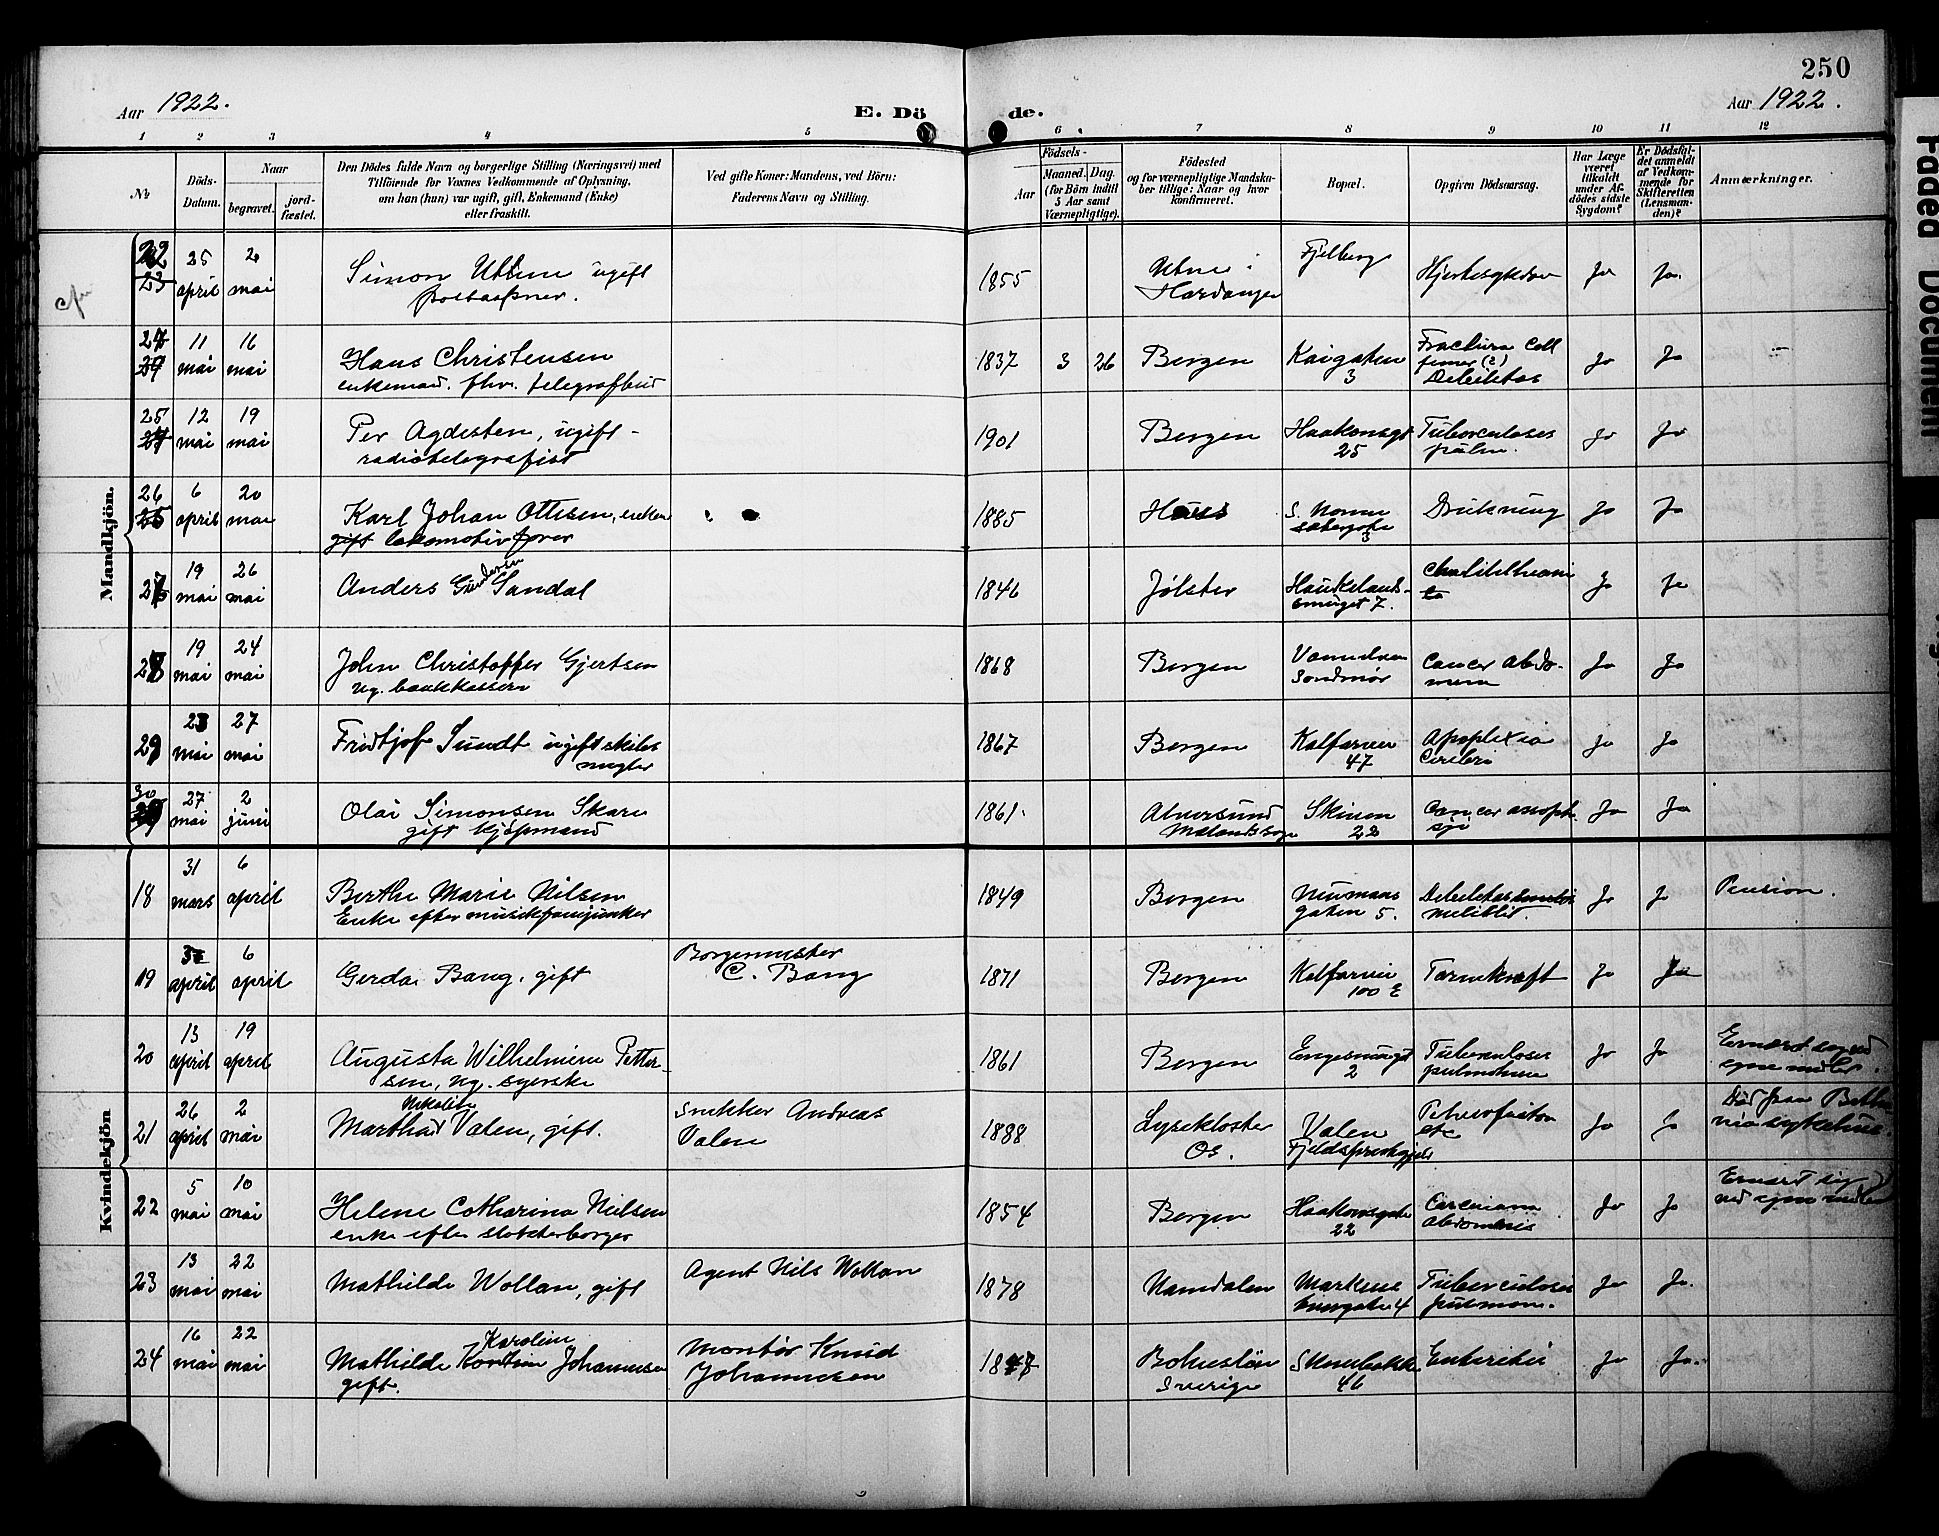 250
Aar 1922.
E. Dö
de.
Aar 1922.
1 2 3 4 5 6 7 8 9 10 11 12
No
Döds-
Datum.
Naar
begravet.
jord-
fæstet.
Den Dödes fulde Navn og borgerlige Stilling (Næringsvei) med
Tilföiende for Voxnes Vedkommende af Oplysning,
om han (hun) var ugift, gift, Enkemand (Enke)
eller fraskilt.
Ved gifte Koner: Mandens, ved Börn:
Faderens Navn og Stilling.
Födsels-
Aar
Maaned. Dag.
(for Börn indtil
5 Aar samt
Værnepligtige).
Födested
og for værnepligtige Mandska-
ber tillige: Naar og hvor
konfirmeret.
Bopæl.
Opgiven Dödsaarsag.
Har Læge
været
tilkaldt
under Af-
dödes sidste
Sygdom?
Er Dödsfal-
det anmeldt
af Vedkom-
mende for
Skifteretten
(Lensman-
den)?
Anmærkninger.
Mandkjön.
23 25 april 2 mai
Simon Utne ugift
postaapner.
1855
Utne i
Hardanger
Fjelberg
Ja Ja.
24 11 mai 16 mai
Hans Christensen
enkemand. fhv. telegrafbud
1837 3 26
Bergen
Kaigaten
3
Fractura Coll
femor (?)
Debilitas
Ja Ja
25 12 mai 19 mai
Per Agdesten, ugift -
radiotelegrafist
1901
Bergen
Haakonsgt
25
Tuberculoses
pulm.
Ja Ja
26 6 april 20 mai
Karl Johan Ottesen, enkem
gift lokomotivfører
1885
Haus
3
Drukning
Ja Ja
27 19 mai 26 mai
Anders Gundersen Sandal
1846
Jølster
Haukelands-
smuget 7.
Ja Ja
28 19 mai 24 mai
John Christoffer Gjertsen
ug. bankkasserer
1868
Bergen
Vannelven
Søndmør
Cancer abdo-
minis
Ja Ja
29 23 mai 27 mai
Fridtjof Sundt ugift skibs
megler
1867
Bergen
Kalfarvei
47
Apoplexia
Cerebri
Ja Ja
30 27 mai 2 juni
Olai Simonsen Skare
gift kjøpmand
1861.
Alversund
Skiven
22
Cancer
Ja Ja
Kvindekjön
18 31 mars 6 april
Berthe Marie Nilsen
Enke efter musikfanejunker
1849
Bergen
Neumans
gaten 5.
Ja Ja
Pension.
19 april 6 april
Gerda Bang, gift
Borgermester
C. Bang
1871
Bergen
Kalfarvei
100 E
Tarmkræft
Ja Ja
20 13 april 19 april
Augusta Wilhelmine Petter-
sen, ug. syerske
1861
Bergen
Engesmuget
2
Tuberculoses
pulmonum
Ja Ja
Ernæret seg ved
egne midler.
21 26 april 2 mai
Nikoline
Martha Valen, gift.
Snekker Andreas
Valen
1888
Lysekloster
Os.
Valen
Ja Ja
Død paa Betha-
nia sykehus.
22 5 mai 10 mai
Helene Catharina Nielsen
enke efter slakterborger
1854
Bergen
Haakonsgate
22
Carcinoma
abdominis
Ja Ja
Ernæret sig
ved egne midler
23 13 mai 22 mai
Mathilde Wollan, gift
Agent Nils Wollan
1878
Namdalen
Markus
4
Tuberculoses
pulmon.
Ja Ja.
24 16 mai 22 mai
Karoline
Mathilde Johannesen
gift.
Montør Knud
Johannesen
Bohuslän
Sverige
46
Enteritis
Ja Ja.
Faded Document